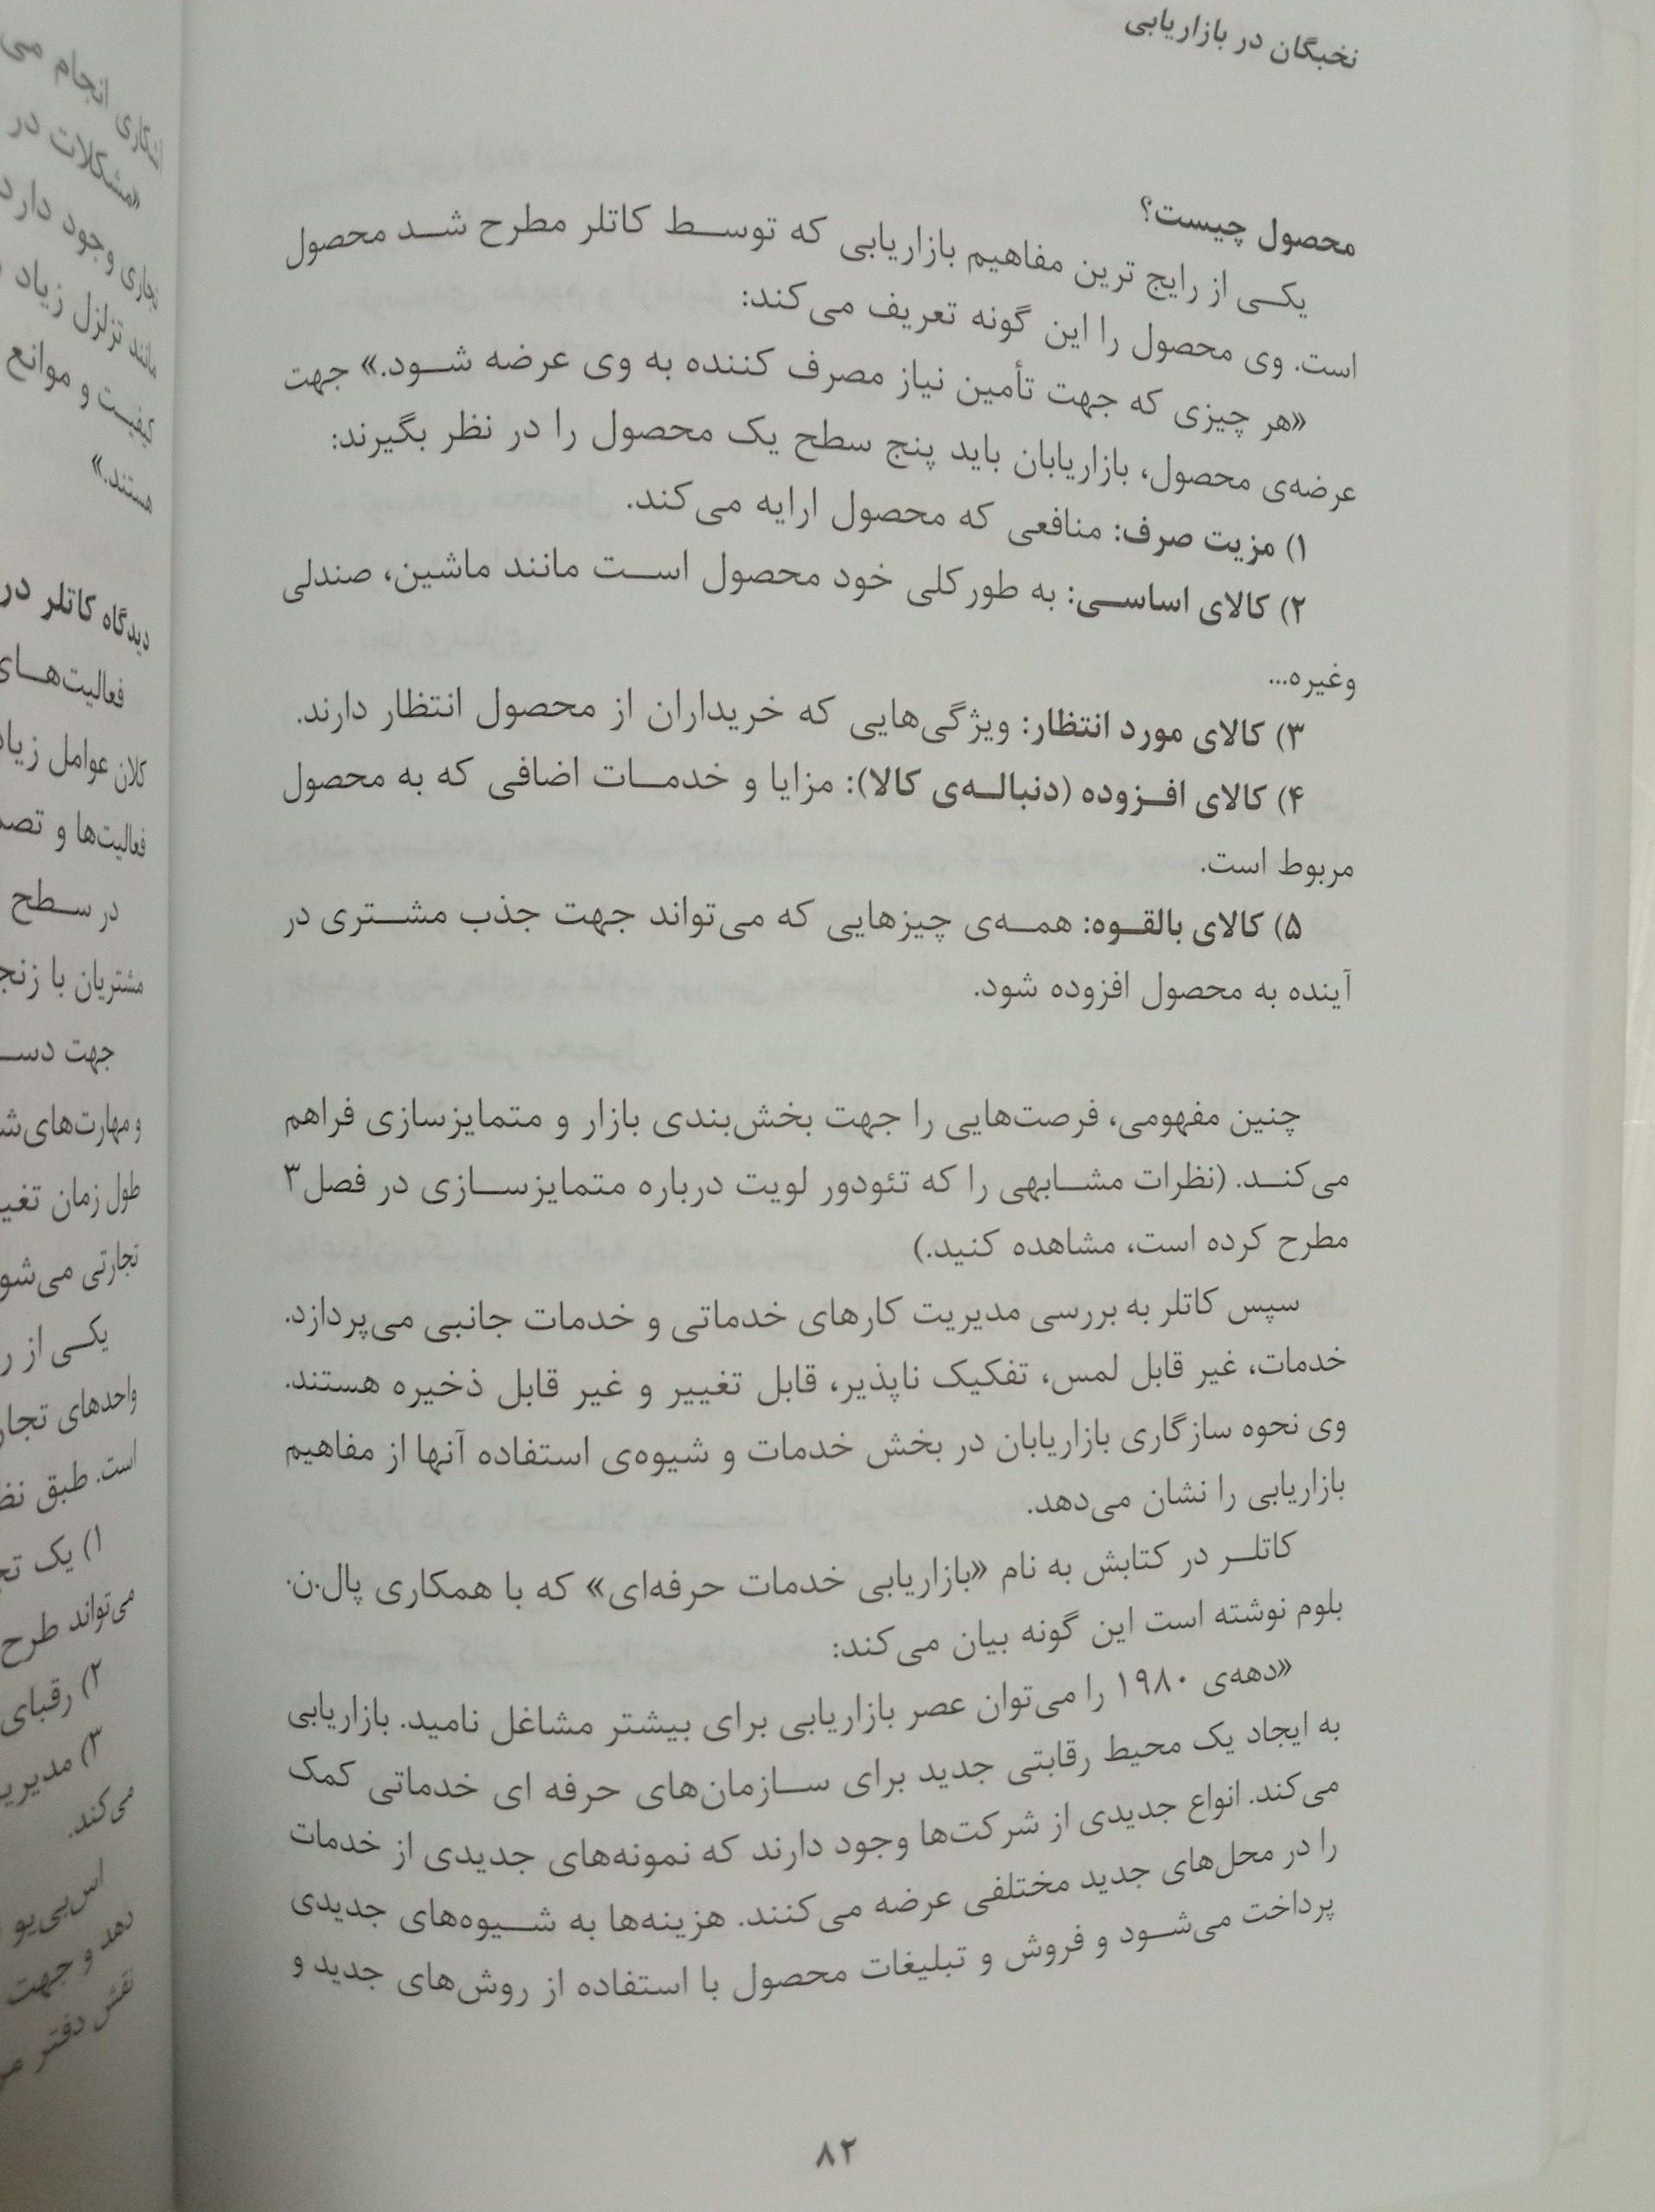 نخبگان در بازاریابی
محصول چیست؟
یکی از رایج ترین مفاهیم بازاریابی که توسط کاتلر مطرح شد محصول
است. وی محصول را این گونه تعریف می‌کند:
«هر چیزی که جهت تأمین نیاز مصرف کننده به وی عرضه شود.» جهت
عرضه‌ی محصول، بازاریابان باید پنج سطح یک محصول را در نظر بگیرند:
۱) مزیت صرف: منافعی که محصول ارایه می‌کند.
۲) کالای اساسی: به طور کلی خود محصول است مانند ماشین، صندلی
وغیره...
۳) کالای مورد انتظار: ویژگی‌هایی که خریداران از محصول انتظار دارند.
۴) کالای افزوده (دنباله‌ی کالا): مزایا و خدمات اضافی که به محصول
مربوط است.
۵) کالای بالقوه: همه‌ی چیزهایی که می‌تواند جهت جذب مشتری در
آینده به محصول افزوده شود.
چنین مفهومی، فرصت‌هایی را جهت بخش‌بندی بازار و متمایزسازی فراهم
می‌کند. (نظرات مشابهی را که تئودور لویت درباره متمایزسازی در فصل۳
مطرح کرده است، مشاهده کنید.)
سپس کاتلر به بررسی مدیریت کارهای خدماتی و خدمات جانبی می‌پردازد.
خدمات، غیر قابل لمس، تفکیک ناپذیر، قابل تغییر و غیر قابل ذخیره هستند.
وی نحوه سازگاری بازاریابان در بخش خدمات و شیوه‌ی استفاده آنها از مفاهیم
بازاریابی را نشان می‌دهد.
کاتلر در کتابش به نام «بازاریابی خدمات حرفه‌ای» که با همکاری پال.ن.
بلوم نوشته است این گونه بیان می‌کند:
«دهه‌ی ۱۹۸۰ را می‌توان عصر بازاریابی برای بیشتر مشاغل نامید. بازاریابی
به ایجاد یک محیط رقابتی جدید برای سازمان‌های حرفه ای خدماتی کمک
می‌کند. انواع جدیدی از شرکت‌ها وجود دارند که نمونه‌های جدیدی از خدمات
را در محل‌های جدید مختلفی عرضه می‌کنند. هزینه‌ها به شیوه‌های جدیدی
پرداخت می‌شود و فروش و تبلیغات محصول با استفاده از روش‌های جدید و
۸۲
انجام می
«مشکلات در
تجاری وجود دارد
مانند تزلزل زیاد
کیفیت و موانع
هستند.»
دیدگاه کاتلر در
فعالیت‌های
کلان عوامل
فعالیت‌ها و
در سطح
مشتریان با
جهت
و مهارت‌های
طول زمان
تجارتی
یکی از
واحدهای
است. طبق
۱) یک
می‌تواند طرح
۲) رقبای
۳)
می‌کند.
اس‌بی‌یو
دهد و جهت
نقش دفتر